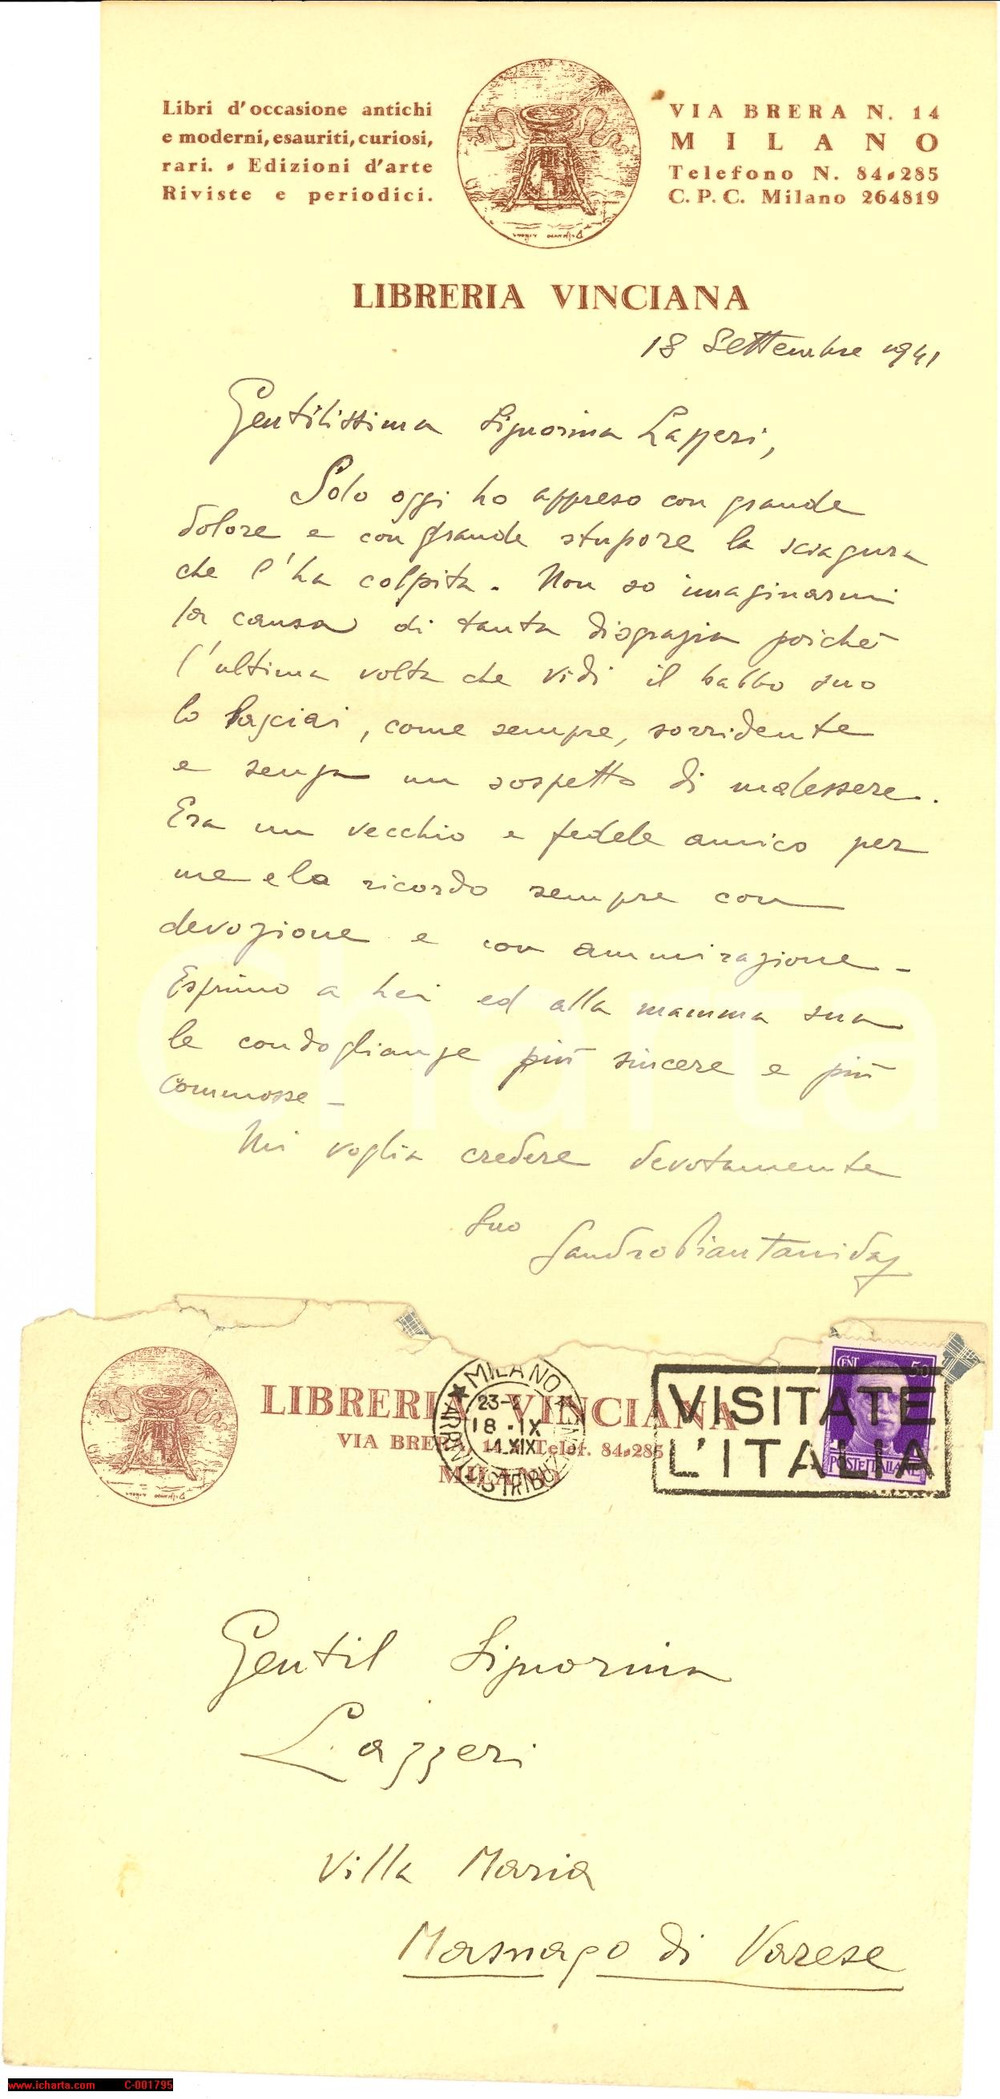 Libri d'occasione antichi
e moderni, esauriti, curiosi,
rari. • Edizioni d'arte
Riviste e periodici.
VIA BRERA N. 14
MILANO
Telefono N. 84•285
C.P.C. Milano 264819
LIBRERIA VINCIANA
18 Settembre 1941
Gentilissima Signorina Lazzeri,
Solo oggi ho appreso con grande
dolore e con grande stupore la sciagura
che l'ha colpita. Non so immaginarmi
la causa di tanta disgrazia poichè
l'ultima volta che vidi il babbo suo
lo lasciai, come sempre, sorridente
e senza un sospetto di malessere.
Era un vecchio e fedele amico per
me e lo ricordo sempre con
devozione e con ammirazione -
Esprimo a Lei ed alla mamma sua
le condoglianze più sincere e più
commosse -
Mi voglia credere devotamente
Suo Sandro Piantanida
LIBRERIA VINCIANA
VIA BRERA, 14 - Telef. 84•285
MILANO
MILANO
23-
18 · IX
41 XIX
ARRIVI E DISTRIBUZ
VISITATE
L'ITALIA
CENT 50
POSTE ITALIANE
Gentil Signorina
Lazzeri
Villa Maria
Masnago di Varese
Charta
www.icharta.com C-001795